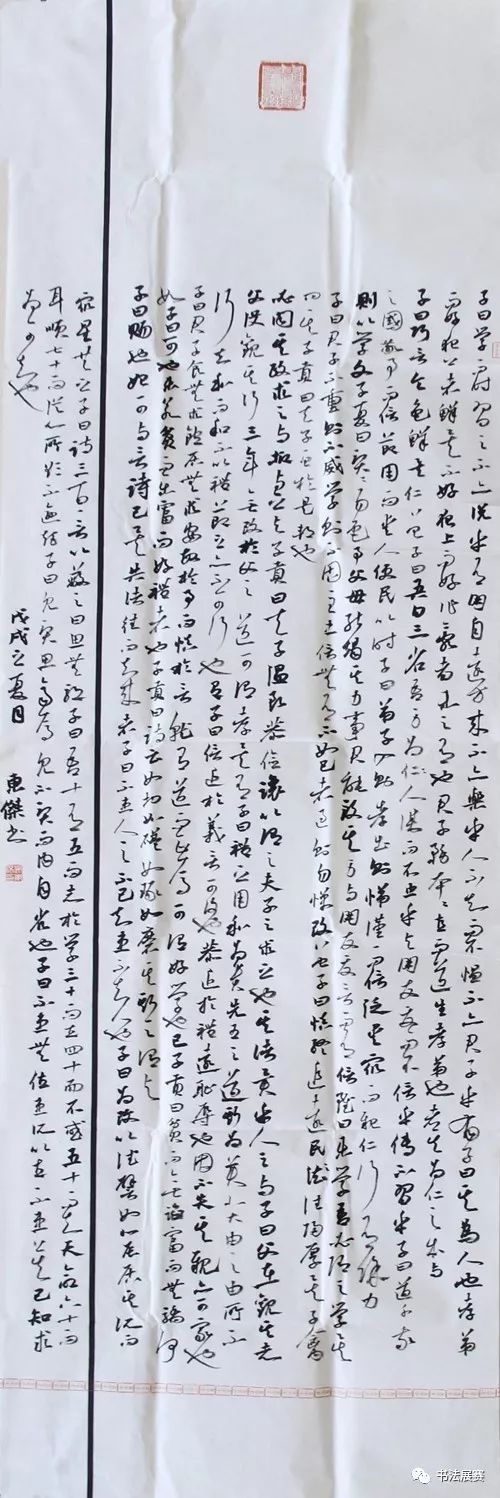 子曰学而时习之不亦说乎有朋自遠方来不亦樂乎人不知而不愠不亦君子乎有子曰其為人也孝弟
而好犯上者鲜矣不好犯上而好作亂者未之有也君子務本本立而道生孝弟也者其為仁之本与
子曰巧言令色鲜矣仁曾子曰吾日三省吾身為人謀而不忠乎与朋友交而不信乎傳不習乎子曰道千乘
之國敬事而信節用而愛人使民以时子曰弟子入則孝出則悌謹而信汎愛眾而親仁行有餘力
則以学文子夏曰賢賢易色事父母能竭其力事君能致其身与朋友交言而有信雖曰未学吾必謂之学矣
子曰君子不重則不威学則不固主忠信無友不如己者過則勿憚改曾子曰慎終追遠民德歸厚矣子禽
問子貢曰夫子至於是邦也
必聞其政求之与抑与之与子貢曰夫子温良恭儉讓以得之夫子之求之也其諸異乎人之求之与子曰父在觀其志
父没觀其行三年無改於父之道可謂孝矣有子曰禮之用和為貴先王之道斯為美小大由之有所不
行知和而和不以禮節之亦不可行也有子曰信近於義言可復也恭近於禮遠恥辱也因不失其親亦可宗也
子曰君子食無求飽居無求安敏於事而慎於言就有道而正焉可謂好学也已子貢曰貧而無諂富而無驕何
如子曰可也未若貧而樂富而好禮者也子貢曰詩云如切如磋如琢如磨其斯之謂与
子曰賜也始可与言詩已矣告諸往而知来者子曰不患人之不己知患不知人也子曰為政以德譬如北辰居其所而
眾星共之子曰詩三百一言以蔽之曰思無邪子曰吾十有五而志於学三十而立四十而不惑五十而知天命六十而
耳順七十而從心所欲不逾矩子曰見賢思齊焉見不賢而内自省也子曰不患無位患所以立不患莫己知求
為可知也
戊戌立夏日 東傑书
书法展赛